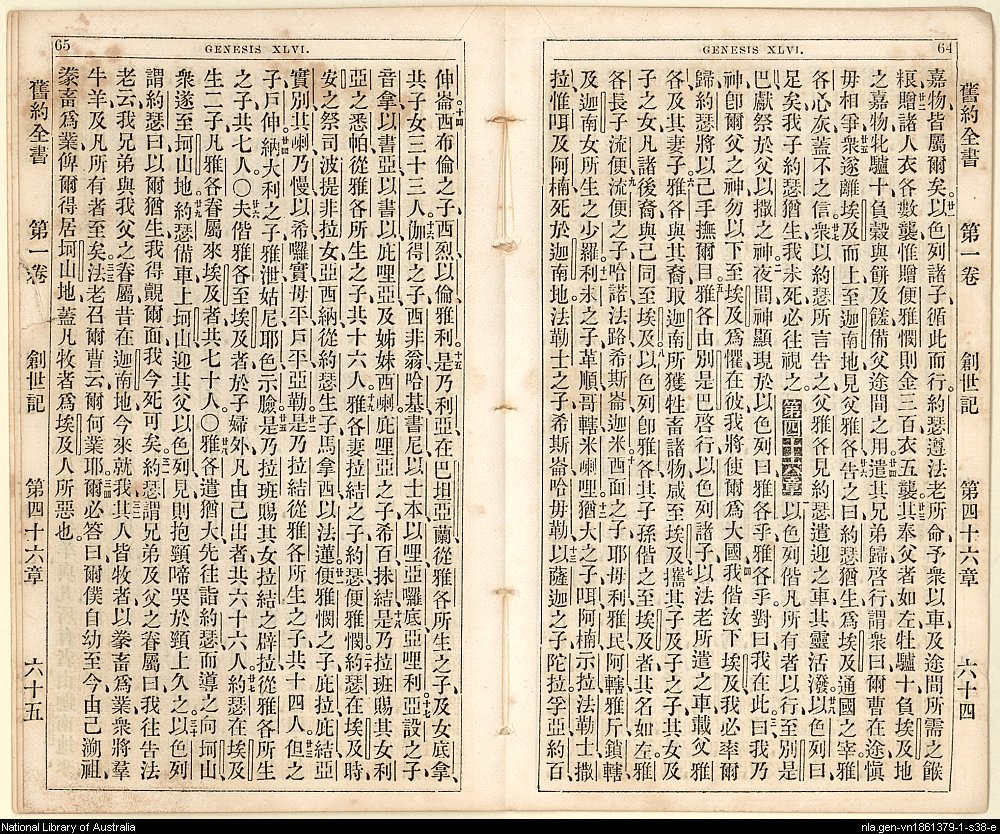 GENESIS XLVI.
64
舊約全書 第一卷 創世記 第四十六章 六十四
嘉物皆屬爾矣以色列諸子循此而行約瑟遵法老所命予衆以車及途間所需之餱
粻贈諸人衣各數襲惟贈便雅憫則金三百衣五襲其奉父者如左牡驢十負埃及地
之嘉物牝驢十負穀與餅及饈備父途間之用遣其兄弟歸啓行謂衆曰爾曹在途愼
毋相爭衆遂離埃及而上至迦南地見父雅各告之曰約瑟猶生爲埃及通國之宰雅
各心灰蓋不之信衆以約瑟所言告之父雅各見約瑟遣迎之車其靈活潑以色列曰
足矣我子約瑟猶生我未死必往視之第四十六章以色列偕凡所有者以行至別是
巴獻祭於父以撒之神夜間神顯現於以色列曰雅各乎雅各乎對曰我在此曰我乃
神卽爾父之神勿以下至埃及爲懼在彼我將使爾爲大國我偕汝下埃及我必率爾
歸約瑟將以己手撫爾目雅各由別是巴啓行以色列諸子以法老所遣之車載父雅
各及其妻子雅各與其裔取迦南所獲牲畜諸物咸至埃及攜其子及子之子其女及
子之女凡諸後裔與己同至埃及以色列卽雅各其子孫偕之至埃及者其名如左雅
各長子流便流便之子哈諾法路希斯崙迦米西面之子耶毋利雅民阿轄雅斤鎖轄
及迦南女所生之少羅利未之子革順哥轄米喇哩猶大之子咡阿楠示拉法勒士撒
拉惟咡及阿楠死於迦南地法勒士之子希斯崙哈毋勒以薩迦之子陀拉孚亞約百
GENESIS XLVI.
65
伸崙西布倫之子西烈以倫雅利是乃利亞在巴坦亞蘭從雅各所生之子及女底拿
共子女三十三人伽得之子西非翁哈基書尼以士本以哩亞囉底亞哩利亞設之子
音拿以書亞以書以庇哩亞及姊妹西喇庇哩亞之子希百抹結是乃拉班賜其女利
亞之悉帕從雅各所生之子共十六人雅各妻拉結之子約瑟便雅憫約瑟在埃及時
安之祭司波提非拉女亞西納從約瑟生子馬拿西以法蓮便雅憫之子庇拉庇結亞
實別其喇乃慢以希囉實毋平戶平亞勒是乃拉結從雅各所生之子共十四人但之
子戶伸納大利之子雅泄姑尼耶色示臉是乃拉班賜其女拉結之辟拉從雅各所生
之子共七人○夫偕雅各至埃及者於子婦外凡由己出者共六十六人約瑟在埃及
生二子凡雅各眷屬來埃及者共七十人○雅各遣猶大先往詣約瑟而導之向坷山
衆遂至坷山地約瑟備車上坷山迎其父以色列見則抱頸啼哭於頸上久之以色列
謂約瑟曰以爾猶生我得觀爾面我今死可矣約瑟謂兄弟及父之眷屬曰我往告法
老云我兄弟與我父之眷屬昔在迦南地今來就我其人皆牧者以豢畜爲業衆將羣
牛羊及凡所有者至矣法老召爾曹云爾何業耶爾必答曰爾僕自幼至今由己溯祖
豢畜爲業俾爾得居坷山地蓋凡牧者爲埃及人所惡也
舊約全書 第一卷 創世記 第四十六章 六十五
National Library of Australia
nla.gen-vn1861379-1-s38-e